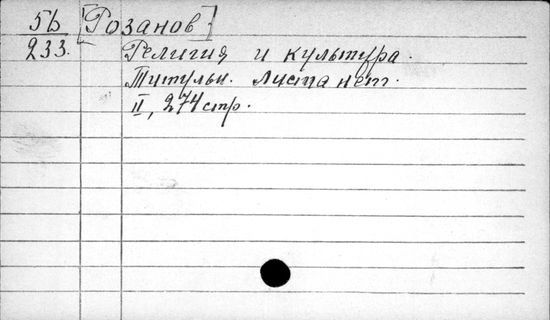 5b [Розанов]
233. Религия и культура.
Титульн. листа нет.
II, 274 стр.